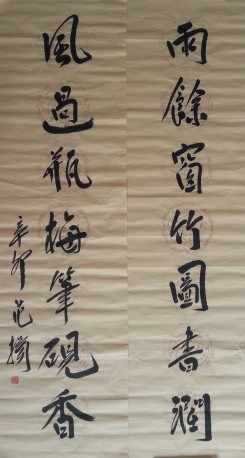 雨餘窗竹圖書潤
風過瓶梅筆硯香
辛卯